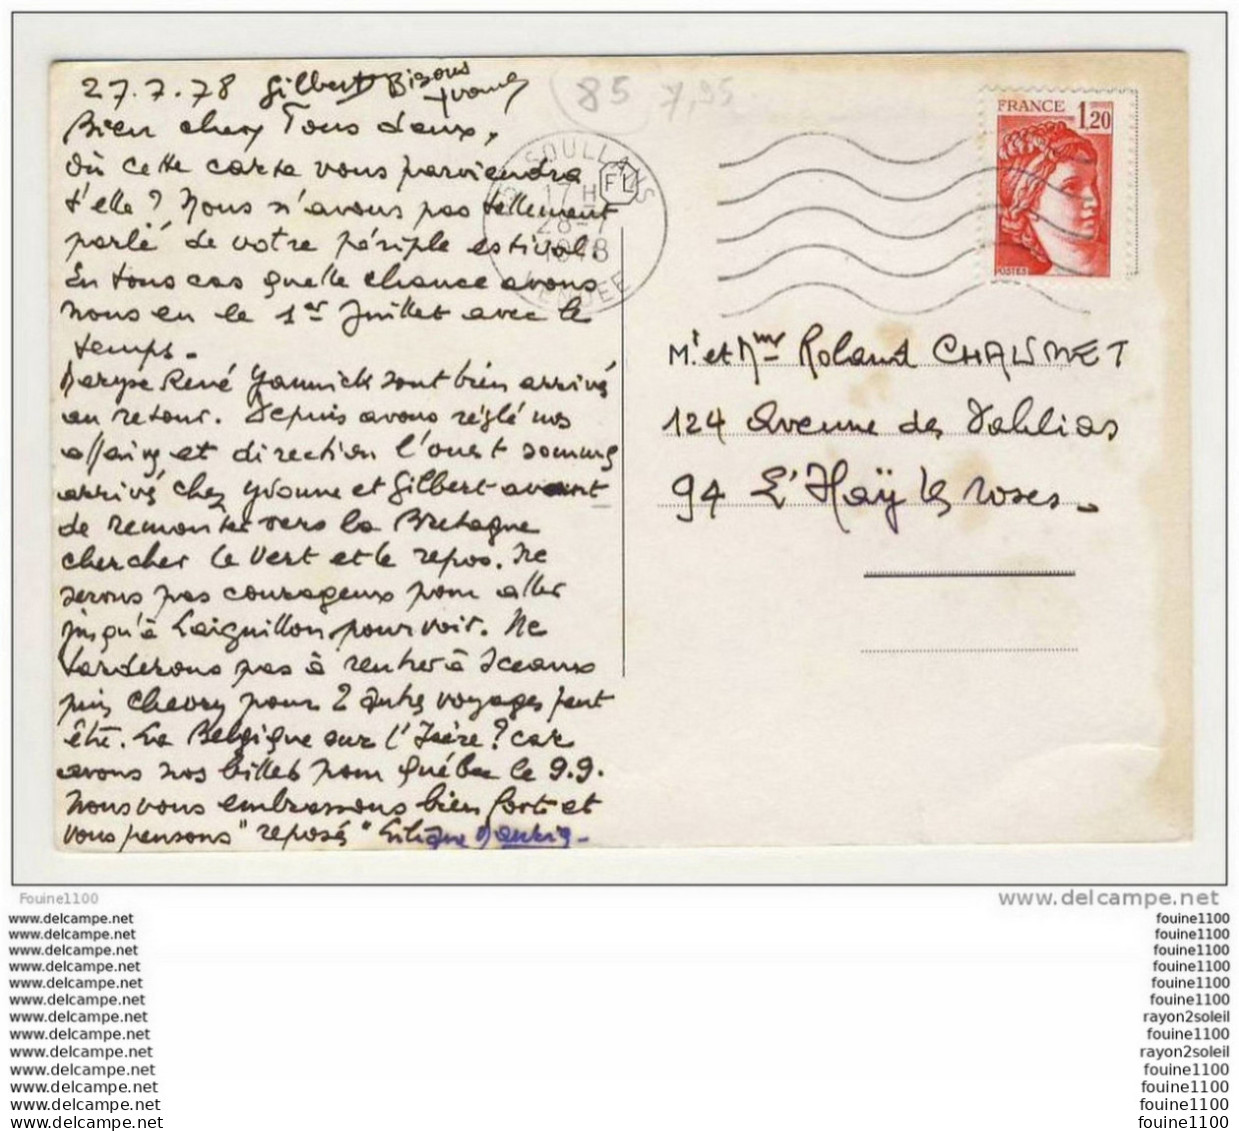 27.7.78 Gilbert Bisous
Yvonne
Bien chers Tous deux,
Où cette carte vous parviendra
t'elle ? Nous n'avons pas tellement
parlé de votre périple estival.
En tous cas quelle chance avons
nous eu le 1er Juillet avec le
temps -
Maryse René Yannick sont bien arrivés
au retour. Depuis avons réglé nos
affaires et direction l'ouest sommes
arrivés chez Yvonne et Gilbert avant
de remonter vers la Bretagne
chercher le vert et le repos. Ne
serons pas courageux pour aller
jusqu'à Laiguillon pour voir. Ne
tarderons pas à rentrer à Sceaux
puis Chevry pour 2 autres voyages peut
être. La Belgique ou l'Isère ? car
avons nos billets pour Québec le 9.9.
Nous vous embrassons bien fort et
vous pensons "reposés"
85 7,95
SOULLANS
17 H
28-7
1978
VENDEE
FL
FRANCE
1,20
POSTES
Mr et Mme Roland CHAUMET
124 Avenue des Dahlias
94 L'Haÿ les roses -
Fouine1100
www.delcampe.net
www.delcampe.net
www.delcampe.net
www.delcampe.net
www.delcampe.net
www.delcampe.net
www.delcampe.net
www.delcampe.net
www.delcampe.net
www.delcampe.net
www.delcampe.net
www.delcampe.net
www.delcampe.net
www.delcampe.net
fouine1100
fouine1100
fouine1100
fouine1100
fouine1100
fouine1100
rayon2soleil
fouine1100
rayon2soleil
fouine1100
fouine1100
fouine1100
fouine1100